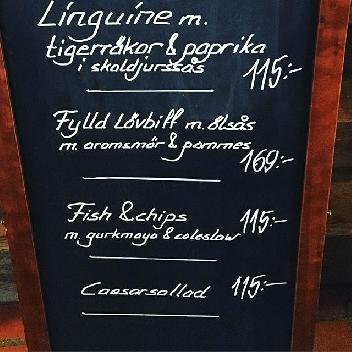 Linguine m.
tigerräkor & paprika
i skaldjurssås 115:-
Fylld Lövbiff m. ölsås
m. aromsmör & pommes
169:-
Fish & chips 115:-
m. gurkmayo & coleslaw
Caesarsallad 115:-